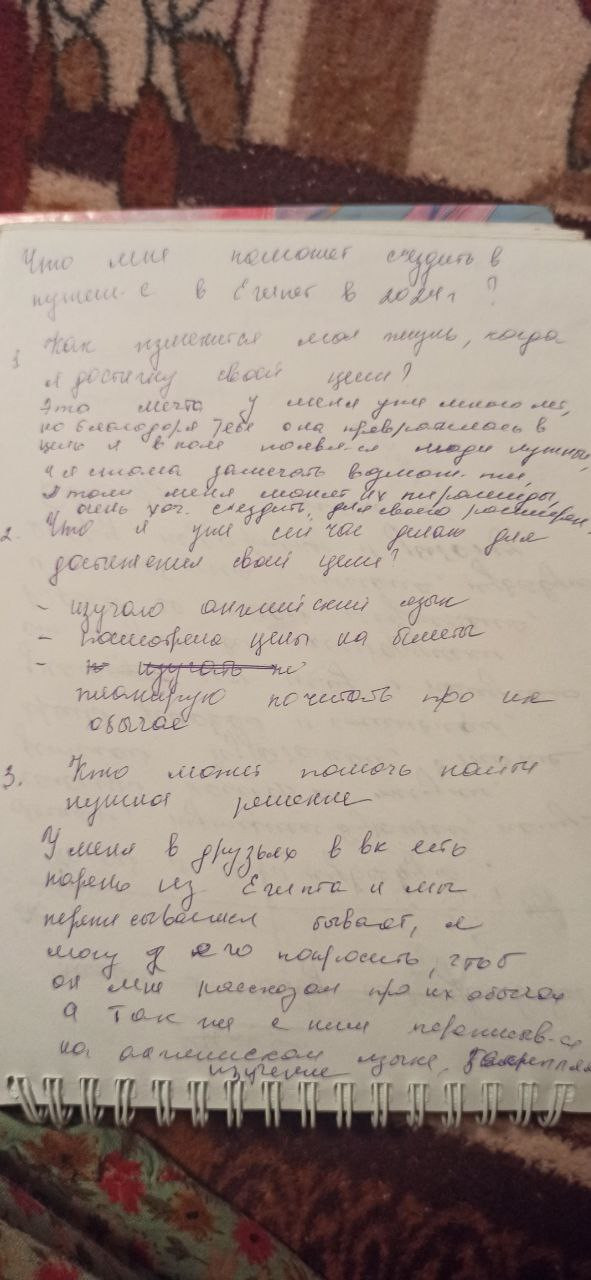 Что мне поможет съездить в
путеш-е в Египет в 2024 г ?
1 Как изменится моя жизнь, когда
я достигну своей цели?
Это мечта у меня уже много лет,
но благодоря Тебе она превратилась в
цель и в поле появл-ся люди нужные,
и я стала замечать возмож-ти,
и тоже меня манят их пирамиды,
очень хоч. съездить, для своего расширен-
2. Что я уже сейчас делаю для
достижения своей цели?
- изучаю английский язык
- посмотрела цены на билеты
-
планирую почитать про их
обычае
3. Кто может помочь найти
нужное решение
У меня в друзьях в вк есть
парень из Египта и мы
переписываемся бывает, я
могу его попросить, чтоб
он мне рассказал про их обычаи
а так же с ним переписыв-ся
на английском языке,
изучение